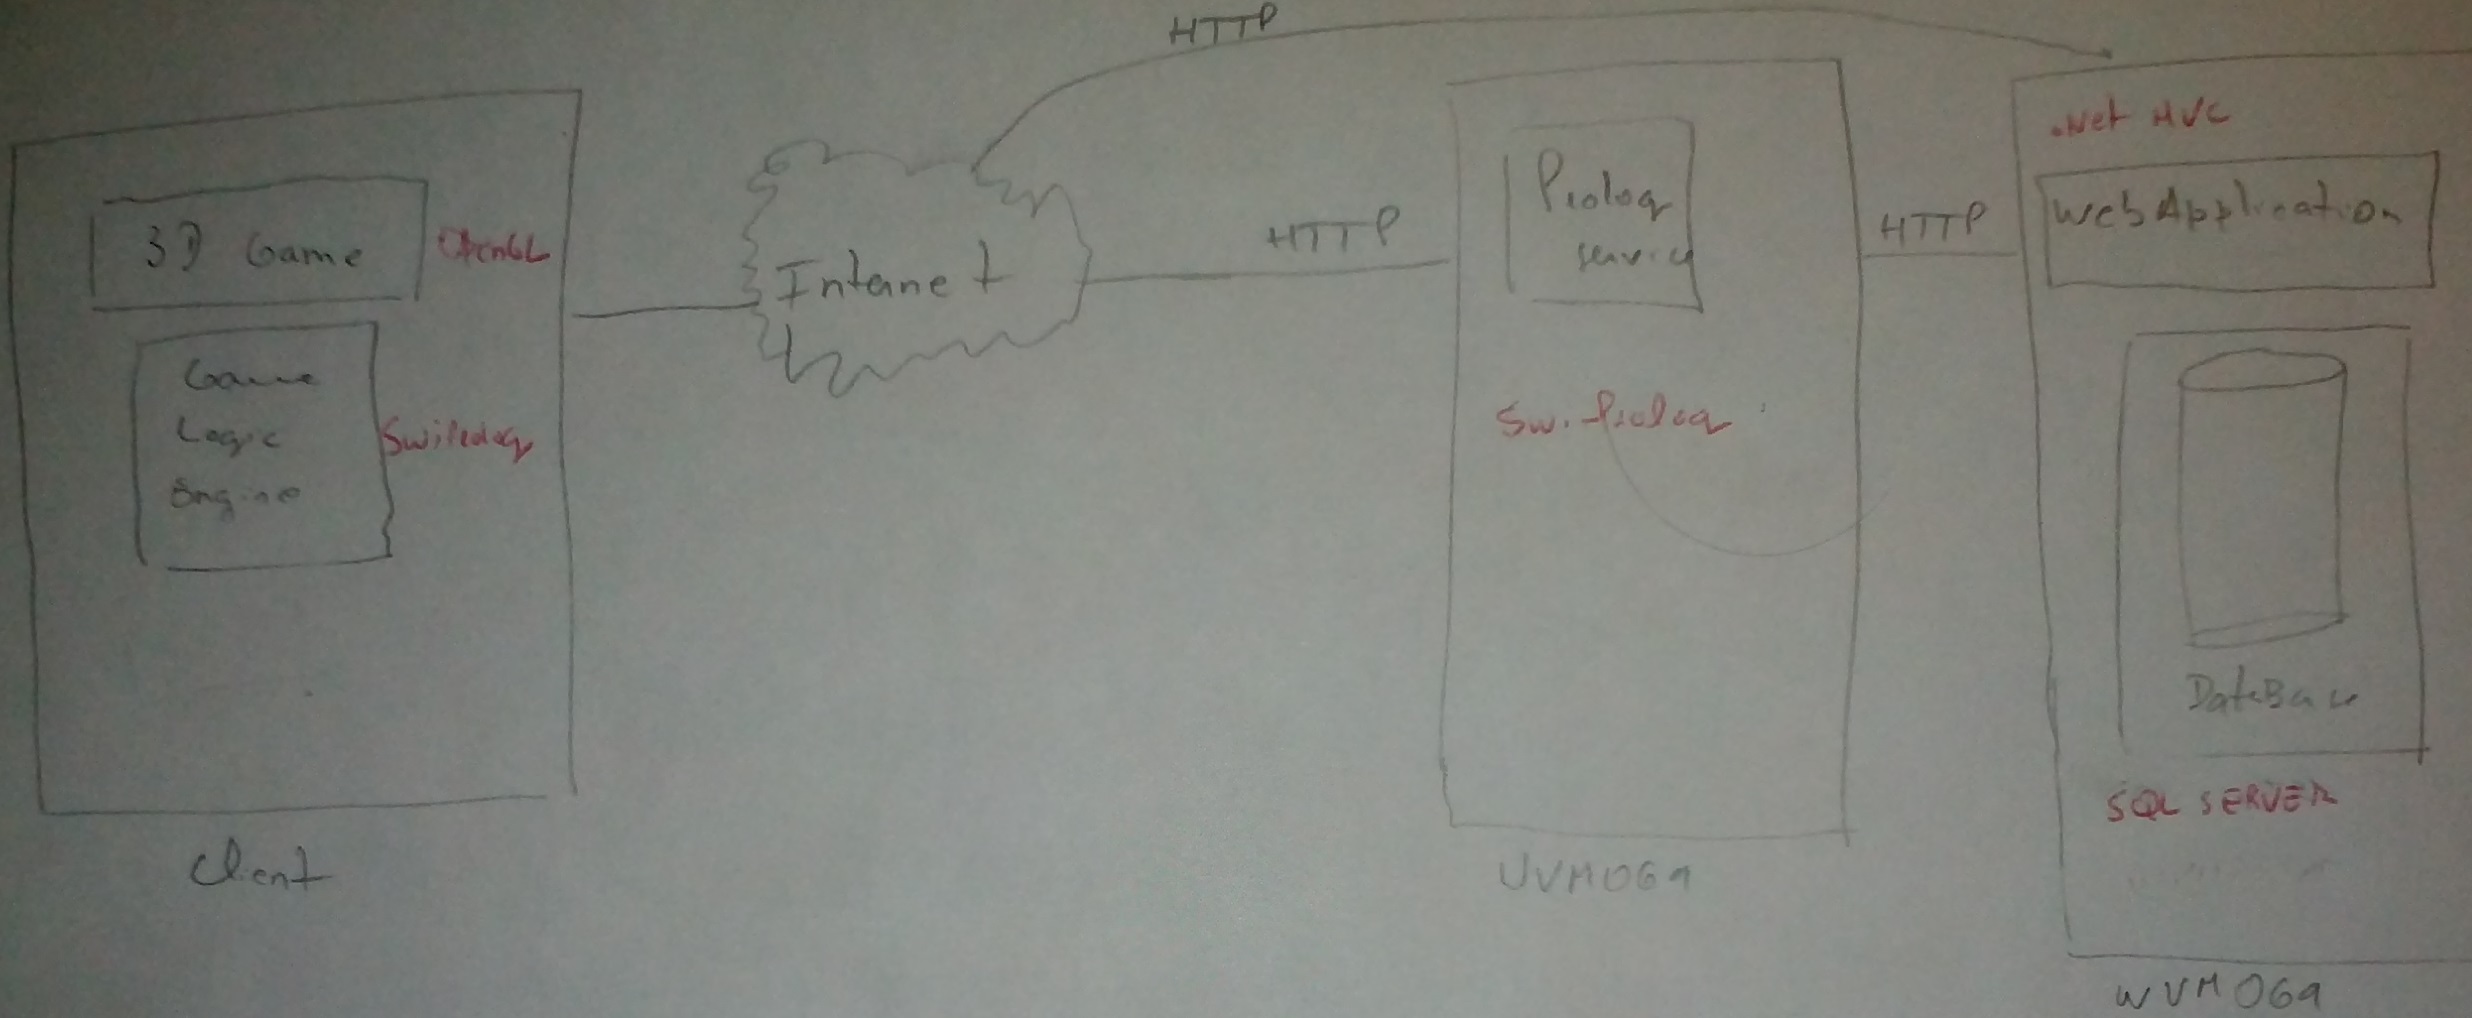 HTTP
3D Game
OpenGL
Game
Logic
Engine
Swiprolog
Client
Internet
HTTP
Prolog
service
Swi-Prolog
UVM069
HTTP
.Net MVC
Web Application
DataBase
SQL SERVER
WVM069